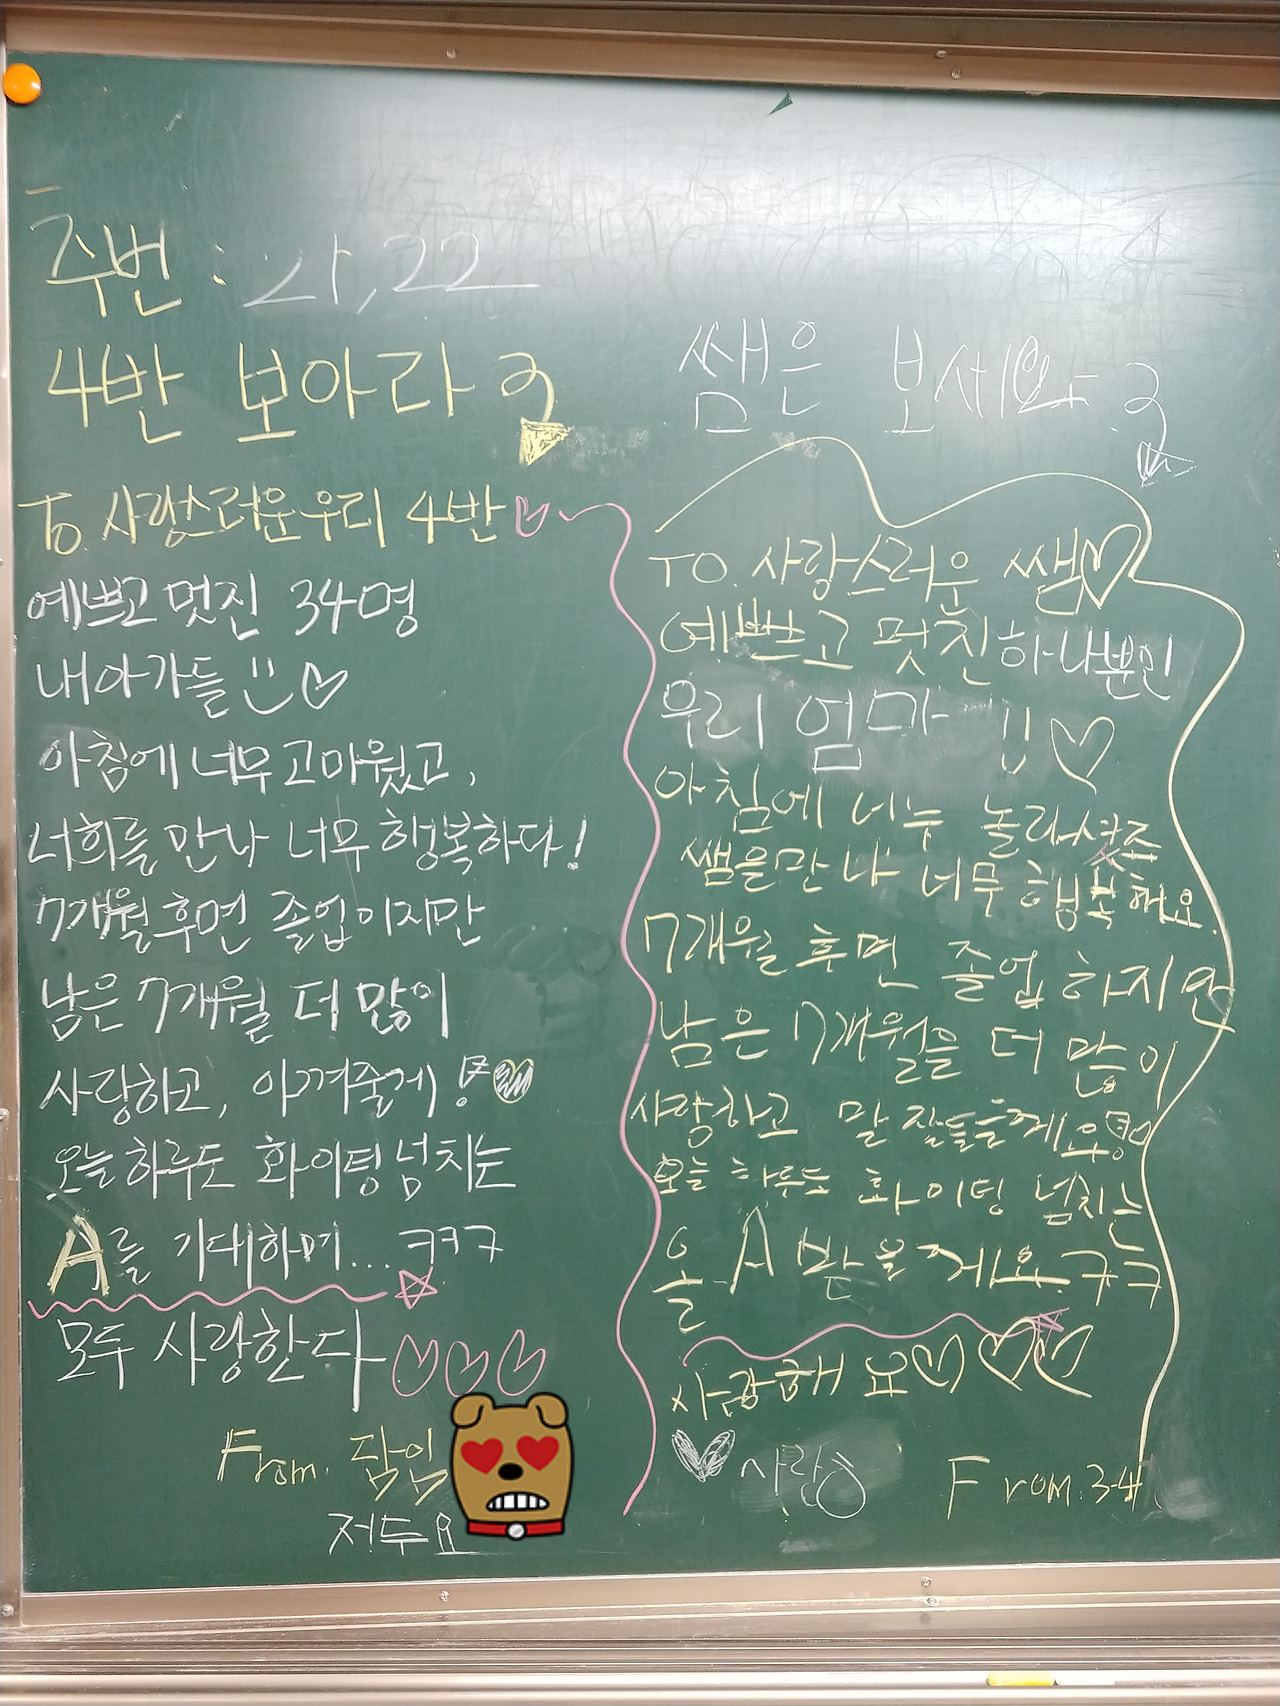 주번 : 21, 22
4반 보아라
To. 사랑스러운 우리 4반
예쁘고 멋진 34명
내 아가들 !!
아침에 너무 고마웠고,
너희를 만나 너무 행복하다!
7개월 후면 졸업이지만
남은 7개월 더 많이
사랑하고, 아껴줄게!
오늘 하루도 화이팅 넘치는
A를 기대하며... ㅋㅋㅋ
모두 사랑한다
From. 담임
저두요
쌤은 보세요
TO. 사랑스러운 쌤
예쁘고 멋진 하나뿐인
우리 엄마 !!
아침에 너무 놀라셨죠
쌤을 만나 너무 행복해요.
7개월 후면 졸업하지만
남은 7개월을 더 많이
사랑하고 말 잘 들을게요
오늘 하루도 화이팅 넘치는
올 A 받을게요 ㅋㅋ
사랑해요
사랑
From. 3-4